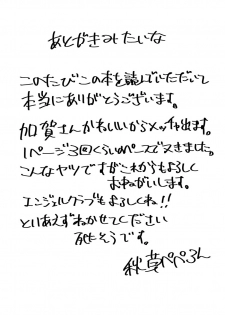 あとがきみたいな
このたびこの本を読んでいただいて
本当にありがとうございます。
加賀さんかわいいからメッチャ出ます。
1ページ3回くらいのペースでスキました。
こんなヤツですがこれからもよろしく
おねがいします。
エンジェルクラブもよろしくね!!
とりあえずねかせてください
死にそうです。
秋草ペペろん